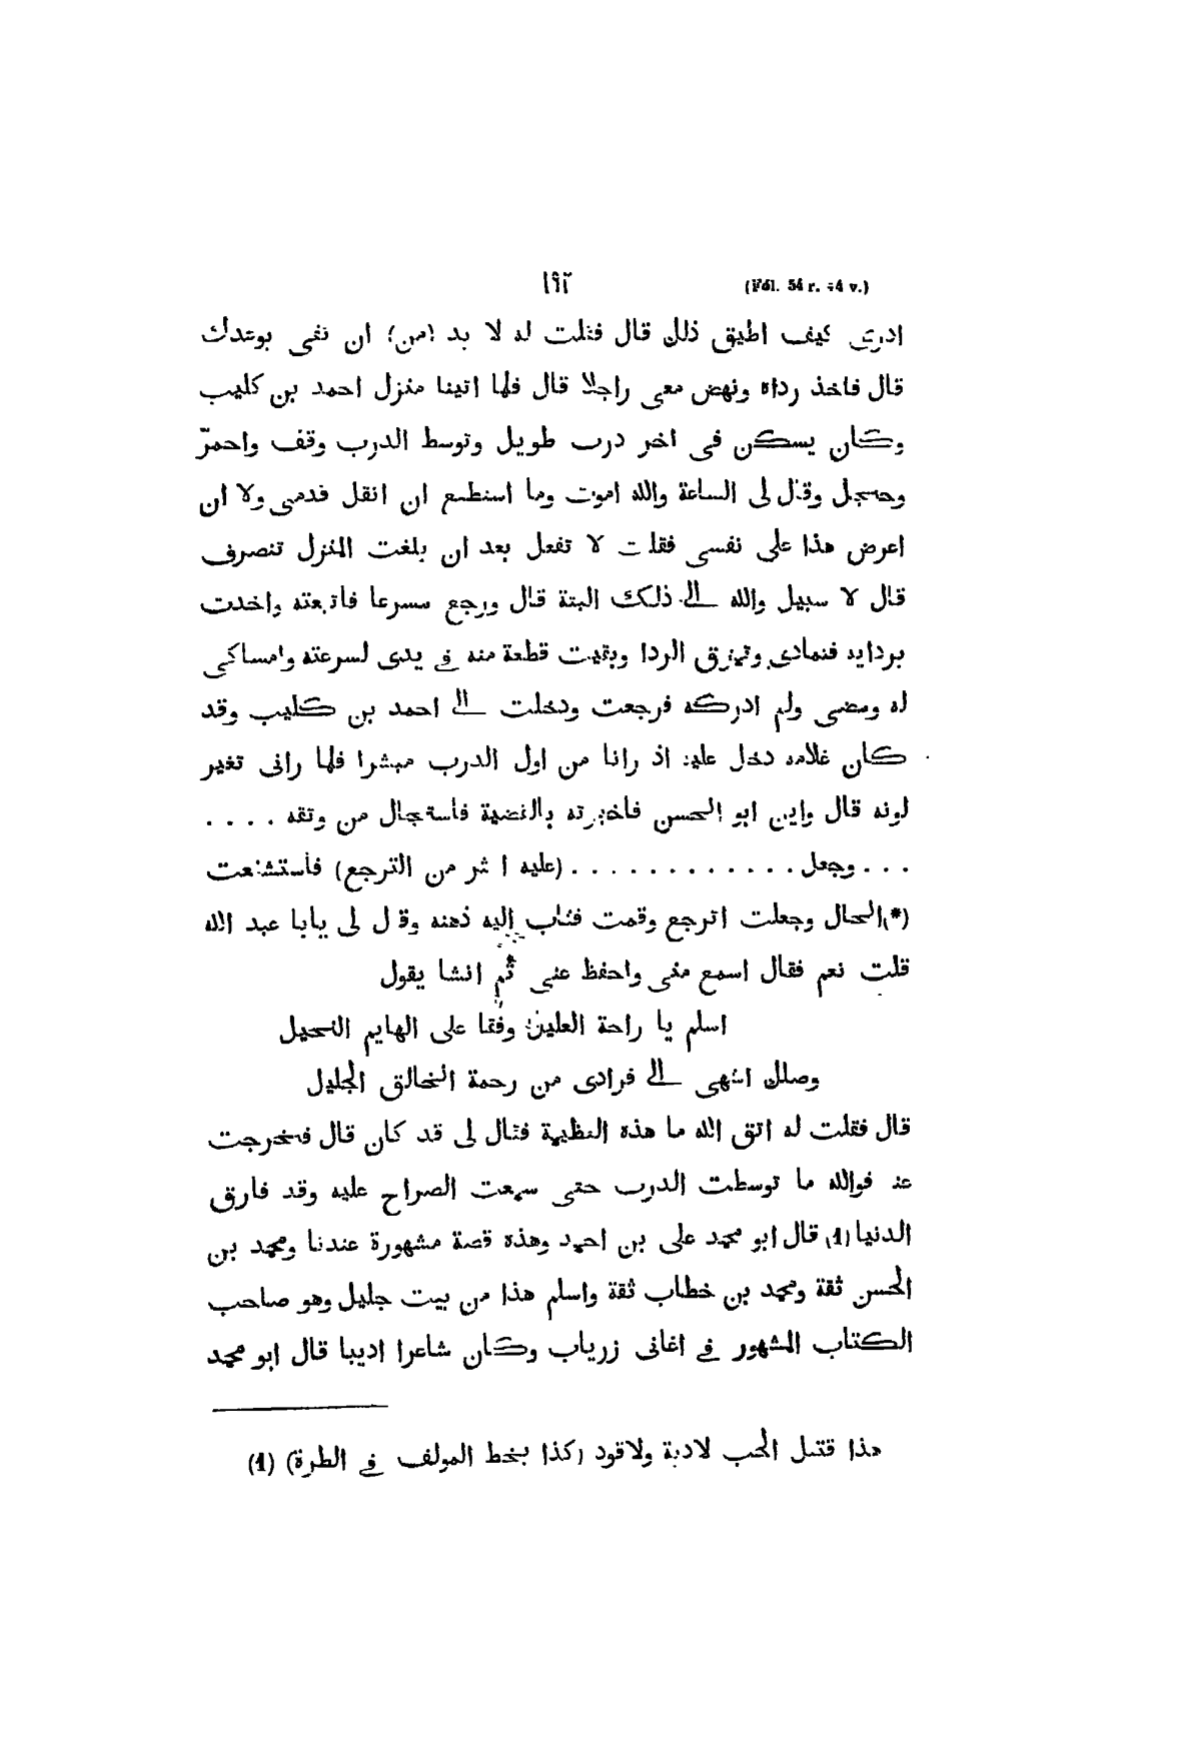 ١٩٢ (Fol. 54 r. 54 v.)
ادرى كيف اطيق ذلك قال فقلت له لا بد (من) ان تفى بوعدك
قال فاخذ رداه ونهض معى راجلا قال فلما اتينا منزل احمد بن كليب
وكان يسكن فى اخر درب طويل وتوسط الدرب وقف واحمرّ
وخجل وقال لى الساعة والله اموت وما استطيع ان انقل قدمى ولا ان
اعرض هذا على نفسى فقلت لا تفعل بعد ان بلغت المنزل تنصرف
قال لا سبيل والله الى ذلك البتة قال ورجع مسرعا فاتبعته واخدت
بردايه فتمادى وتمزق الردا وبقيت قطعة منه فى يدى لسرعته وامساكى
له ومضى ولم ادركه فرجعت ودخلت الى احمد بن كليب وقد
كان غلامه دخل عليه اذ رانا من اول الدرب مبشرا فلما رانى تغير
لونه قال واين ابو الحسن فاخبرته بالقضية فاستحال من وتقه . . . .
. . . وجعل . . . . . . . . . . . . (عليه ا ثر من الترجع) فاستشنعت
(*)الحال وجعلت اترجع وقمت فثاب اليه ذهنه وقال لى يابا عبد الله
قلت نعم فقال اسمع منى واحفظ عنى ثم انشا يقول
اسلم يا راحة العليل وفقا على الهايم النحيل
وصلك اشهى الى فوادى من رحمة الخالق الجليل
قال فقلت له اتق الله ما هذه العظيمة فقال لى قد كان قال فخرجت
عنه فوالله ما توسطت الدرب حتى سمعت الصراح عليه وقد فارق
الدنيا (1) قال ابو محمد على بن احمد وهذه قصة مشهورة عندنا ومحمد بن
الحسن ثقة ومحمد بن خطاب ثقة واسلم هذا من بيت جليل وهو صاحب
الكتاب المشهور فى اغانى زرياب وكان شاعرا اديبا قال ابو محمد
هذا قتيل الحب لادية ولاقود (كذا بخط المولف فى الطرة) (1)